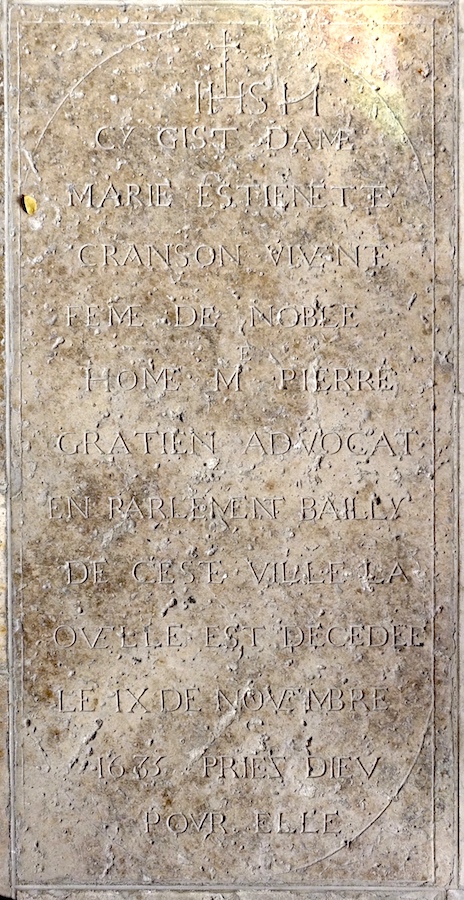 IHS M
CY GIST DAME
MARIE ESTIENETTE
CRANSON VIVANT
FEME DE NOBLE
HOME Mᴱ PIERRE
GRATIEN ADVOCAT
EN PARLEMENT BAILLY
DE CESTE VILLE LA
OV ELLE EST DECEDEE
LE IX DE NOVEMBRE
PRIES DIEV
POVR ELLE